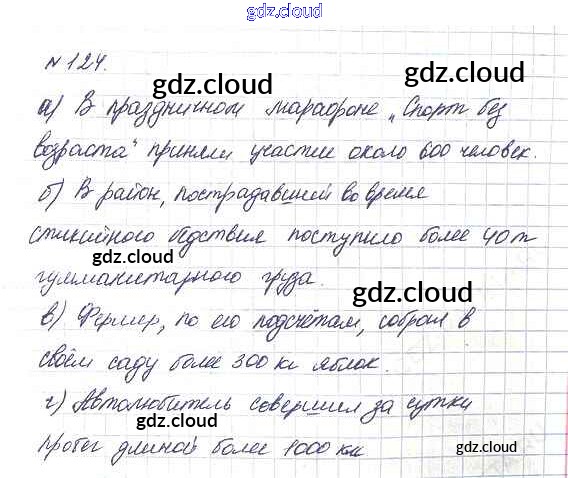 gdz.cloud
№ 124.
gdz.cloud gdz.cloud
а) В праздничном марафоне „Спорт без
возраста" приняли участие около 600 человек.
gdz.cloud gdz.cloud
б) В район, пострадавший во время
стихийного бедствия поступило более 40 т
gdz.cloud
гумманитарного груза.
gdz.cloud
в) Фермер, по его подсчётам, собрал в
gdz.cloud
своём саду более 300 кг яблок.
г) Автолюбитель совершил за сутки
gdz.cloud
пробег длиной более 1000 км
gdz.cloud gdz.cloud